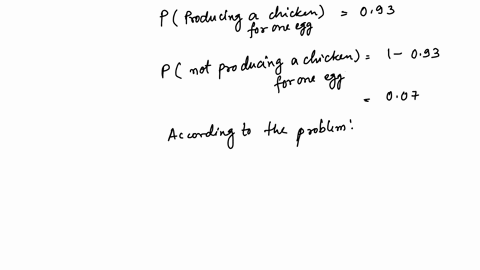 P( Producing a chicken) = 0.93
for one egg
P( not producing a chicken) = 1- 0.93
for one egg
= 0.07
According to the problem: